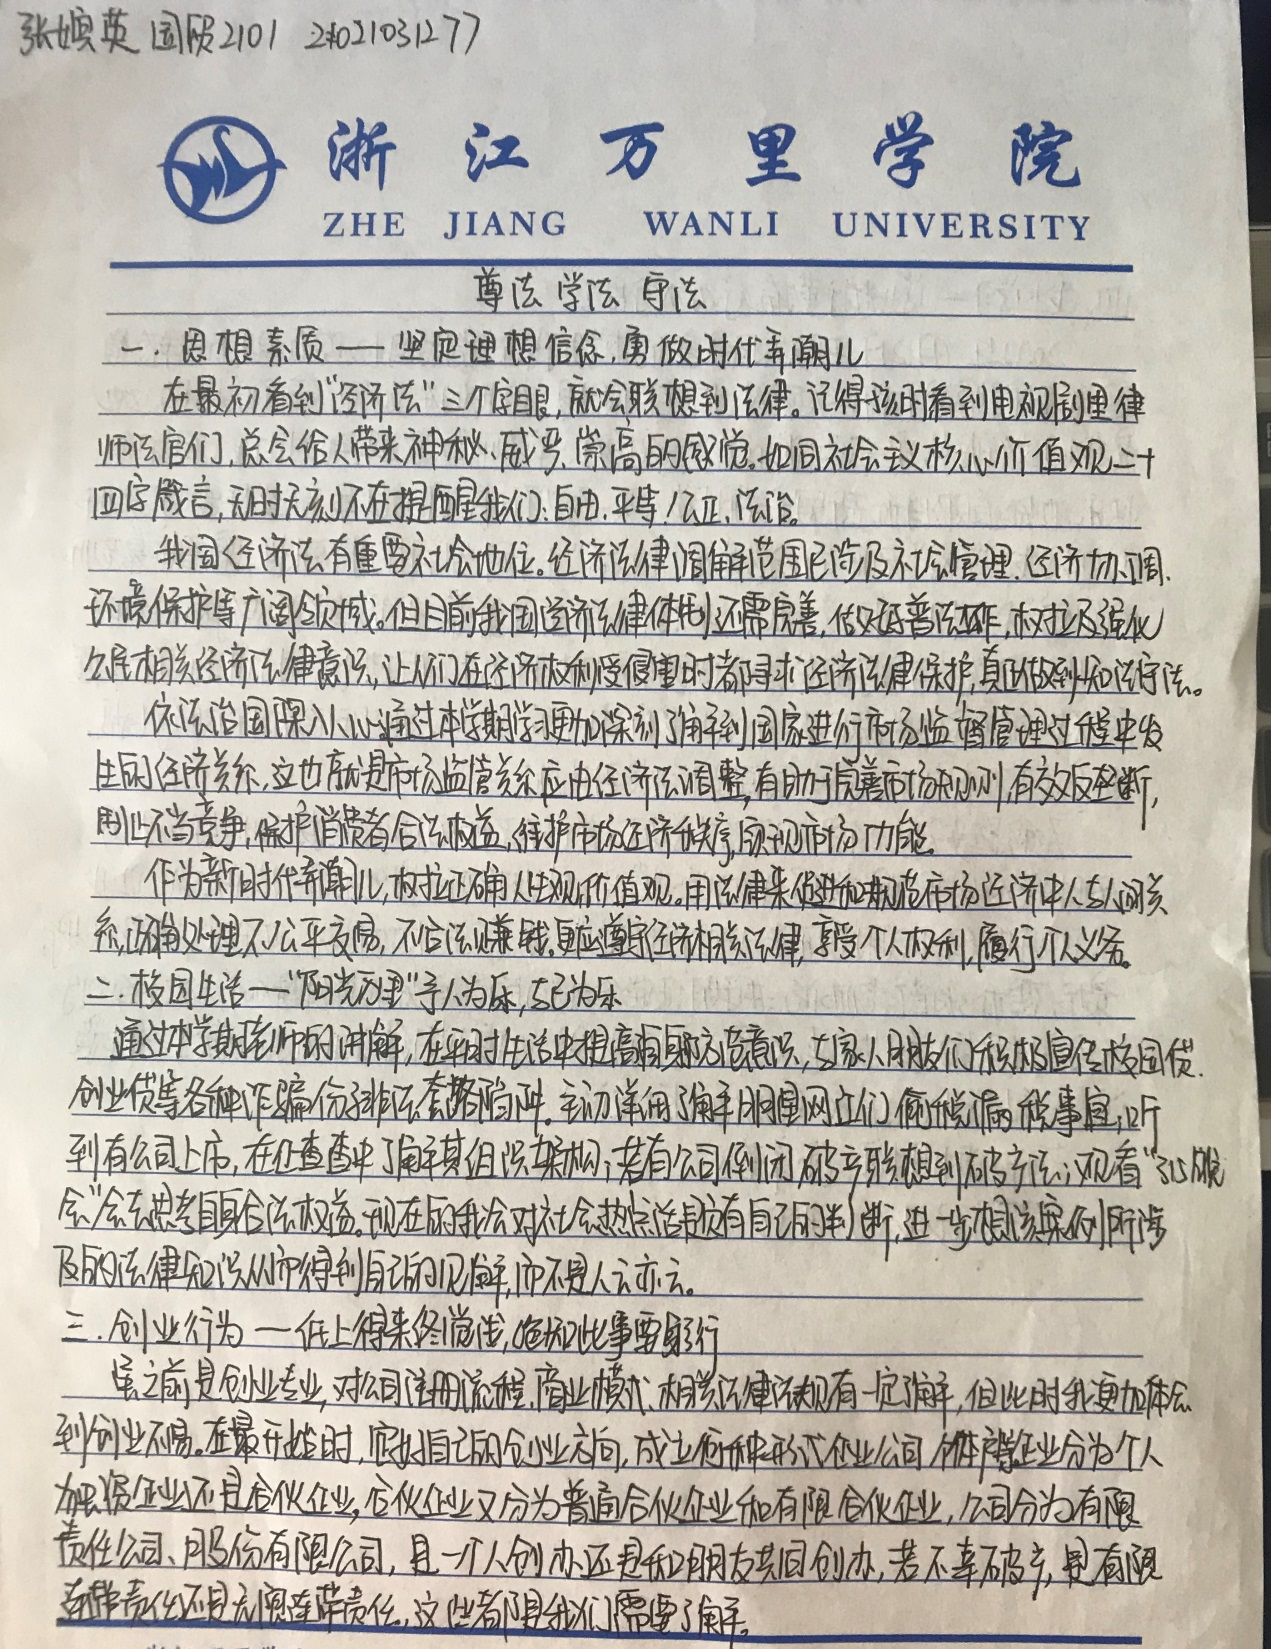 张嫔英 国质2101 2021031277
浙江万里学院
ZHE JIANG WANLI UNIVERSITY
尊法 学法 守法
一. 思想素质 —— 坚定理想信念,勇做时代弄潮儿
在最初看到“经济法”三个字眼,就会联想到法律。记得孩时看到电视剧里律
师法官们,总会给人带来神秘、威严、崇高的感觉。如同社会主义核心价值观二十
四字箴言,无时无刻不在提醒我们:自由、平等、公正、法治。
我国经济法有重要社会地位。经济法律调解范围已涉及社会管理、经济协调、
环境保护等广阔领域。但目前我国经济法律体制还需完善,做好普法工作,权拉及强化
公民相关经济法律意识,让人们在经济权利受侵害时都寻求经济法律保护,真正做到知法守法。
依法治国深入人心,通过本学期学习更加深刻了解到国家进行市场监督管理过程中发
生的经济关系,这也就是市场监管关系应由经济法调整,有助于完善市场规则,有效反垄断,
制止不当竞争,保护消费者合法权益,维护市场经济秩序,实现市场功能。
作为新时代弄潮儿,权拉正确人生观价值观。用法律来促进和规范市场经济中人与人间关
系,正确处理不公平交易,不合法赚钱,更应遵守经济相关法律,享受个人权利,履行个人义务。
二. 校园生活 — “阳光万里”予人为乐,与己为乐
通过本学期老师的讲解,在平时生活中提高自身防范意识,与家人朋友们积极宣传校园贷、
创业贷等各种诈骗份子非法套路陷阱。主动详细了解明星网红们偷税漏税事宜;听
到有公司上市,在企查查中了解其组织架构;若有公司倒闭破产联想到破产法;观看“315晚
会”会去思考自身合法权益。现在的我会对社会热点话题有自己的判断,进一步想该案例所涉
及的法律知识从而得到自己的见解,而不是人云亦云。
三. 创业行为 — 纸上得来终觉浅,绝知此事要躬行
虽之前是创业专业,对公司注册流程、商业模式、相关法律法规有一定了解,但此时我更加体会
到创业不易。在最开始时,定好自己的创业方向,成立何种形式企业公司,企业分为个人
独资企业还是合伙企业,合伙企业又分为普通合伙企业和有限合伙企业,公司分为有限
责任公司、股份有限公司,是一个人创办还是和朋友共同创办,若不幸破产,是有限
连带责任还是无限连带责任,这些都是我们需要了解。